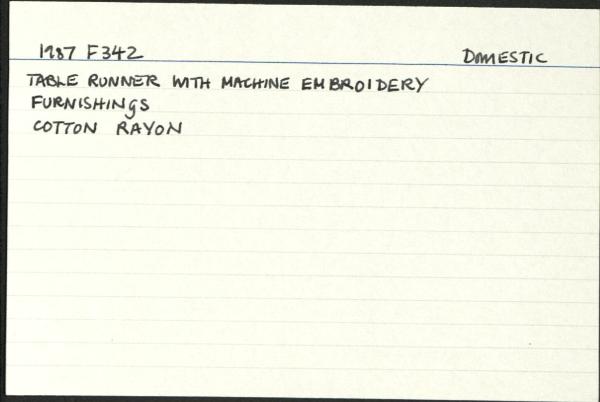 1987 F342 DOMESTIC
TABLE RUNNER WITH MACHINE EMBROIDERY
FURNISHINGS
COTTON RAYON